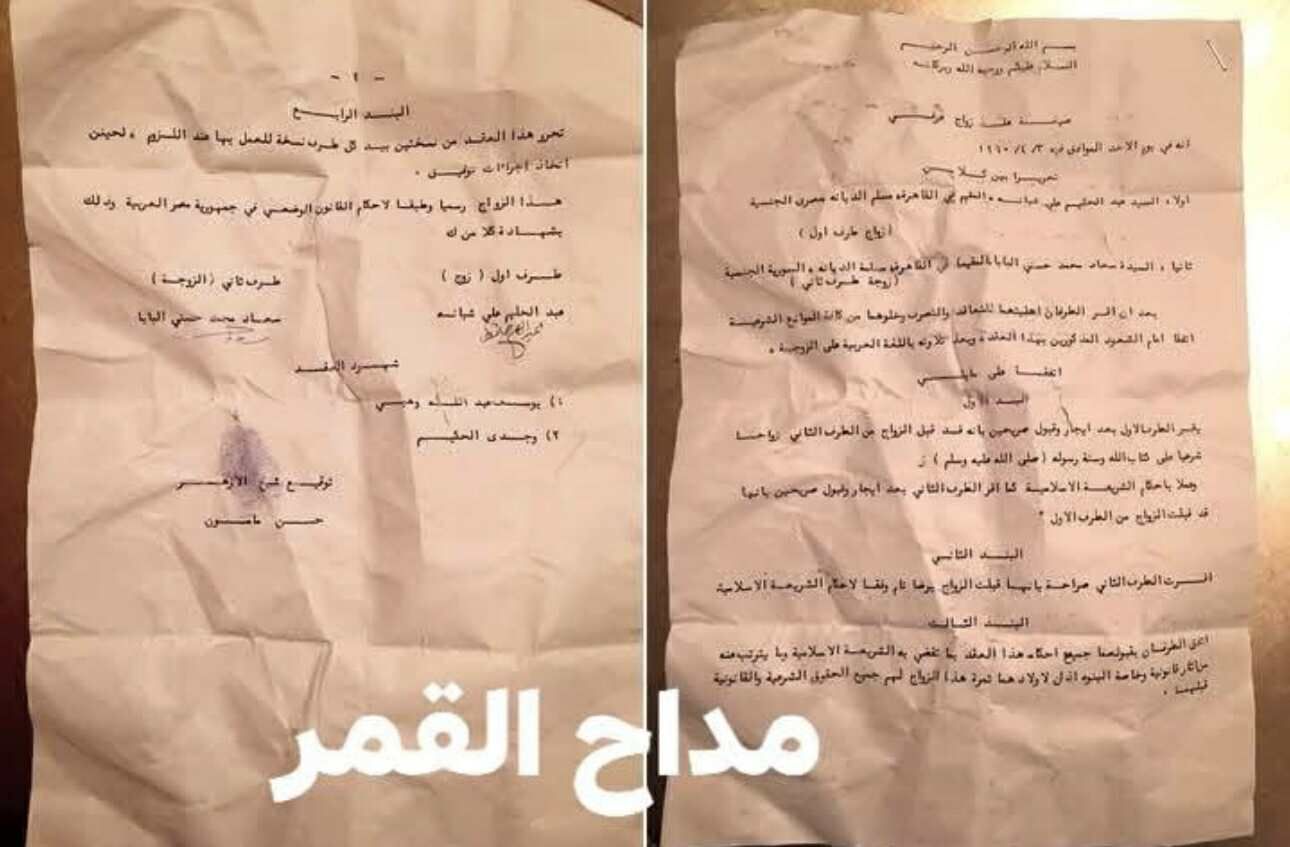 بسم الله الرحمن الرحيم
السلام عليكم ورحمة الله وبركاته
صيغة عقد زواج عرفي
انه في يوم الاحد الموافق فيه ٣/ ٤/ ١٩٦٠
تحريرا بين كلا من
اولا ، السيد عبد الحليم علي شبانه ، المقيم في القاهره مسلم الديانه مصرى الجنسية
( زواج طرف اول )
ثانيا ، السيدة سعاد محمد حسني البابا المقيمة في القاهره مسلمة الديانه ، السورية الجنسية
( زوجة طرف ثاني )
بعد ان اقر الطرفان اهليتهما للتعاقد والتصرف وخلوهما من كافة الموانع الشرعية
اتفقا امام الشهود المذكورين بهذا العقد ، وبعد تلاوته باللغة العربية على الزوجية ،
اتفقا على مايلي
البند الاول
يقر الطرف الاول بعد ايجار وقبول صريحين بانه قد قبل الزواج من الطرف الثاني زواجا
شرعيا على كتاب الله وسنة رسوله ( صلى الله عليه وسلم )
وعملا باحكام الشريعة الاسلامية كما اقر الطرف الثاني بعد ايجار وقبول صريحين بانها
قد قبلت الزواج من الطرف الاول "
البند الثاني
اقرت الطرف الثاني صراحة بانها قبلت الزواج برضا تام وفقا لاحكام الشريعة الاسلامية
البند الثالث
اتفق الطرفان بقبولهما جميع احكام هذا العقد بما تقضي به الشريعة الاسلامية وما يترتب عنه
من اثار قانونية وخاصة البنوه اذ ان لاولاد هما ثمرة هذا الزواج لهم جميع الحقوق الشرعية والقانونية
قبلهما .
- ٢ -
البند الرابع
تحرر هذا العقد من نسختين بيد كل طرف نسخة للعمل بها عند اللزوم ، لحين
اتخاذ اجراءات توفيق .
هذا الزواج رسميا وطبقا لاحكام القانون الوضعي في جمهورية مصر العربية وذلك
بشهادة كلا من ك
طرف اول ( زوج ) طرف ثاني ( الزوجة )
عبد الحليم علي شبانه سعاد محمد حسني البابا
شهود العقد
١) يوسف عبد الله وهبي
٢) وجدى الحكيم
توقيع شيخ الازهر
حسن مامون
مداح القمر